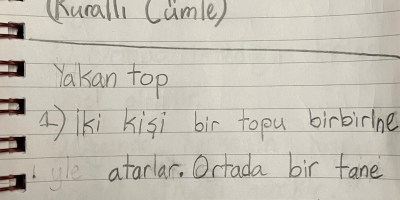 (Kurallı Cümle)
Yakan top
1) İki kişi bir topu birbirine
atarlar. Ortada bir tane